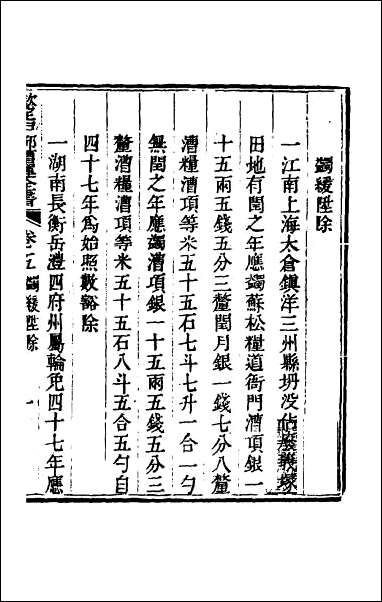 蠲緩陞除
一江南上海太倉鎮洋三州縣坍没佔廢義塚
田地有閏之年應蠲蘇松糧道衙門漕項銀一
十五兩五錢五分三釐閏月銀一錢七分八釐
漕糧漕項等米五十五石七斗七升一合一勺
無閏之年應蠲漕項銀一十五兩五錢五分三
釐漕糧漕項等米五十五石八斗五合五勺自
四十七年爲始照數豁除
一湖南長衡岳澧四府州屬輪免四十七年應
欽定戶部漕運全書 卷之五 蠲緩陞除 一